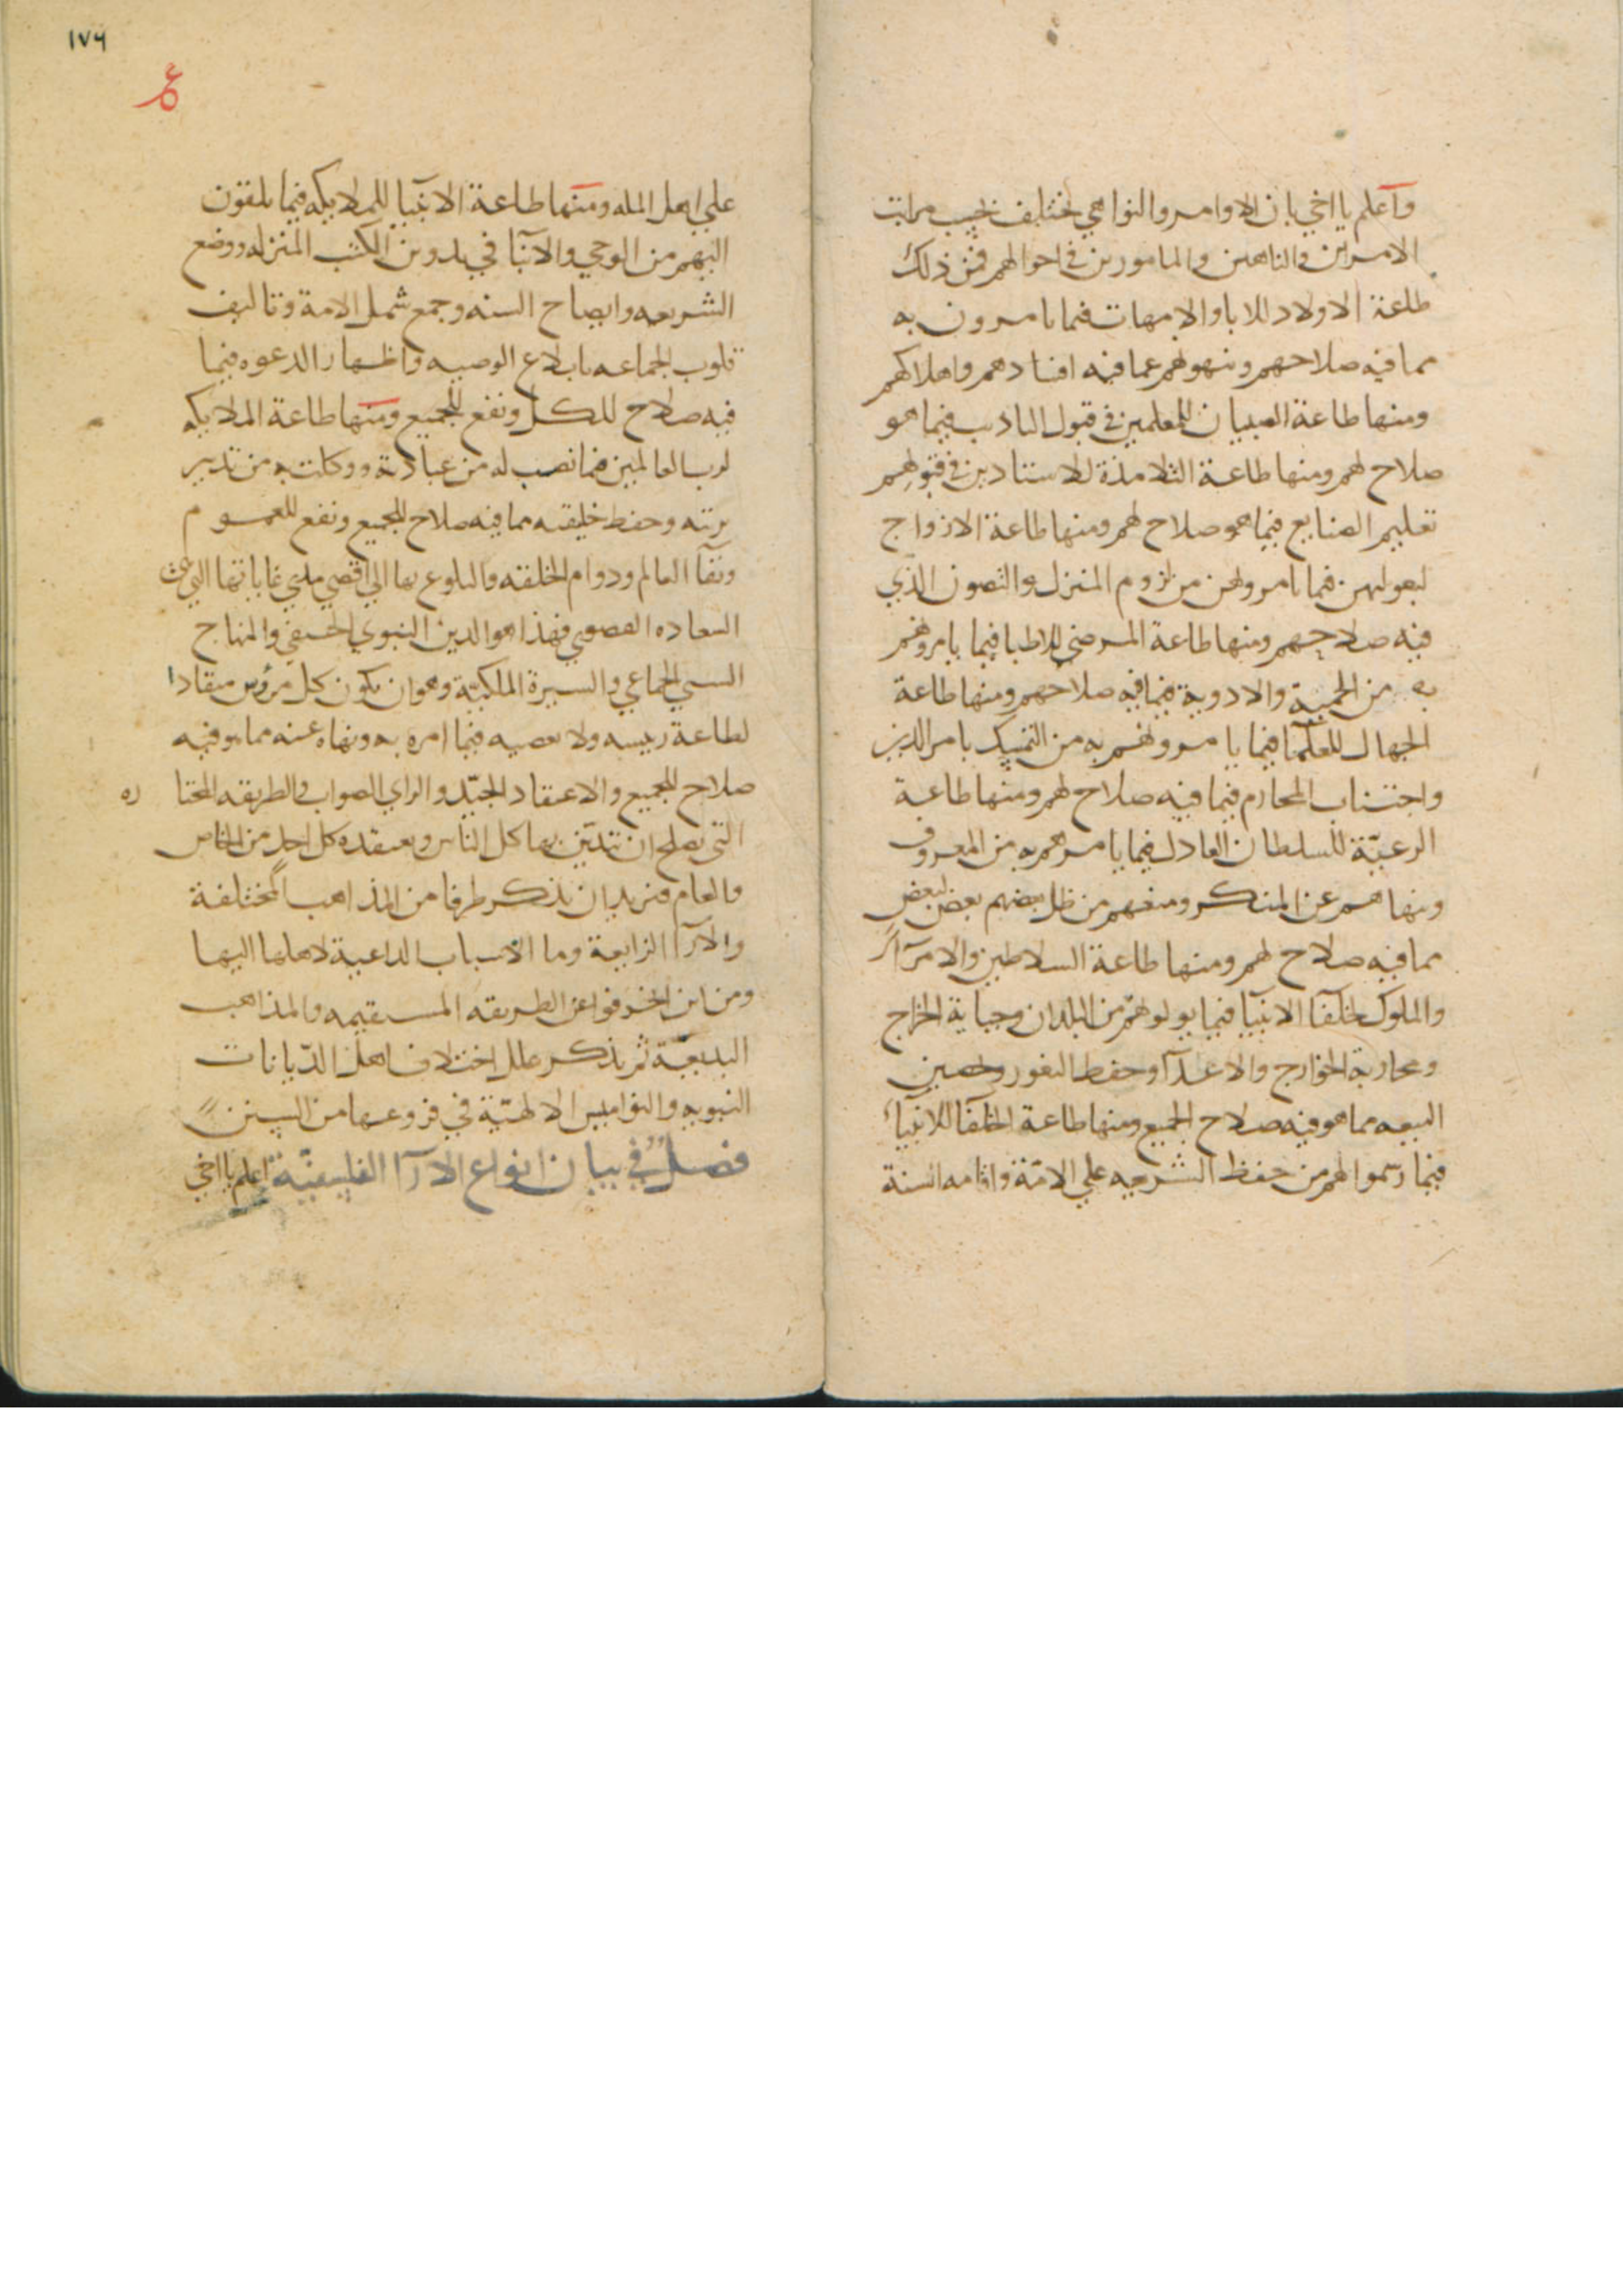 واعلم يا اخي بان الاوامر والنواهي تختلف بحسب مراتب
الامرين والناهين والمامورين في احوالهم فمن ذلك
طاعة الاولاد للابا والامهات فيما يامرون به
مما فيه صلاحهم وينهونهم عما فيه افسادهم واهلاكهم
ومنها طاعة الصبيان للمعلمين في قبول التاديب فيما هو
صلاح لهم ومنها طاعة التلامذة للاستادين في قبولهم
تعليم الصنايع فيما هو صلاح لهم ومنها طاعة الازواج
لبعولتهن فيما يامرونهن من لزوم المنزل والتصون الذي
فيه صلاحهم ومنها طاعة المرضي للاطبا فيما يامرونهم
به من الحمية والادوية فيما فيه صلاحهم ومنها طاعة
الجهال للعلما فيما يامرونهم به من التمسك بامر الدين
واجتناب المحارم فيما فيه صلاح لهم ومنها طاعة
الرعية للسلطان العادل فيما يامرهم به من المعروف
وينهاهم عن المنكر ومنعهم من ظلم بعضهم بعض لبعض
مما فيه صلاح لهم ومنها طاعة السلاطين والامرآء
والملوك لخلفآ الانبيا فيما يولوهم من البلدان وجباية الخراج
ومحاربة الخوارج والاعدآ وحفظ الثغور وتحصين
البيعه مما هو فيه صلاح الجميع ومنها طاعة الخلفآ للانبياء
فيما رسموا لهم من حفظ الشريعه علي الامة واقامه السنة
١٧٦
علي اهل المله ومنها طاعة الانبيا للملايكه فيما يلقون
اليهم من الوحي والانبا في تدوين الكتب المنزله ووضع
الشريعه وايضاح السنه وجمع شمل الامة وتاليف
قلوب الجماعه بابلاغ الوصيه واظهار الدعوه فيما
فيه صلاح للكل ونفع للجميع ومنها طاعة الملايكه
لرب العالمين فيما نصب له من عبادته ووكلت به من تدبير
بريته وحفظ خليقته مما فيه صلاح للجميع ونفع للعموم
وبقآ العالم ودوام الخلقه والبلوغ بها الي اقصي مدي غاياتها التي هي
السعاده القصوي فهذا هو الدين النبوي الحنيفي والمنهاج
السني الجماعي والسيرة الملكية وهو ان يكون كل مرؤس منقادا
لطاعة رييسه ولا يعصيه فيما امره به ونهاه عنه مما هو فيه
صلاح للجميع والاعتقاد الجيد والراي الصواب والطريقه المختاره
التي يصلح ان تتدين بها كل الناس ويعتقده كل احد من الخاص
والعام فنريد ان نذكر طرفا من المذاهب المختلفة
والارآ الزايغة وما الاسباب الداعية لاهلها اليها
ومن اين انحرفوا عن الطريقه المستقيمه والمذاهب
البديعية ثم نذكر علل اختلاف اهل الديانات
النبويه والنواميس الالهية في فروعها من السنن
فصل في بيان انواع الارآ الفلسفية اعلم يا اخي